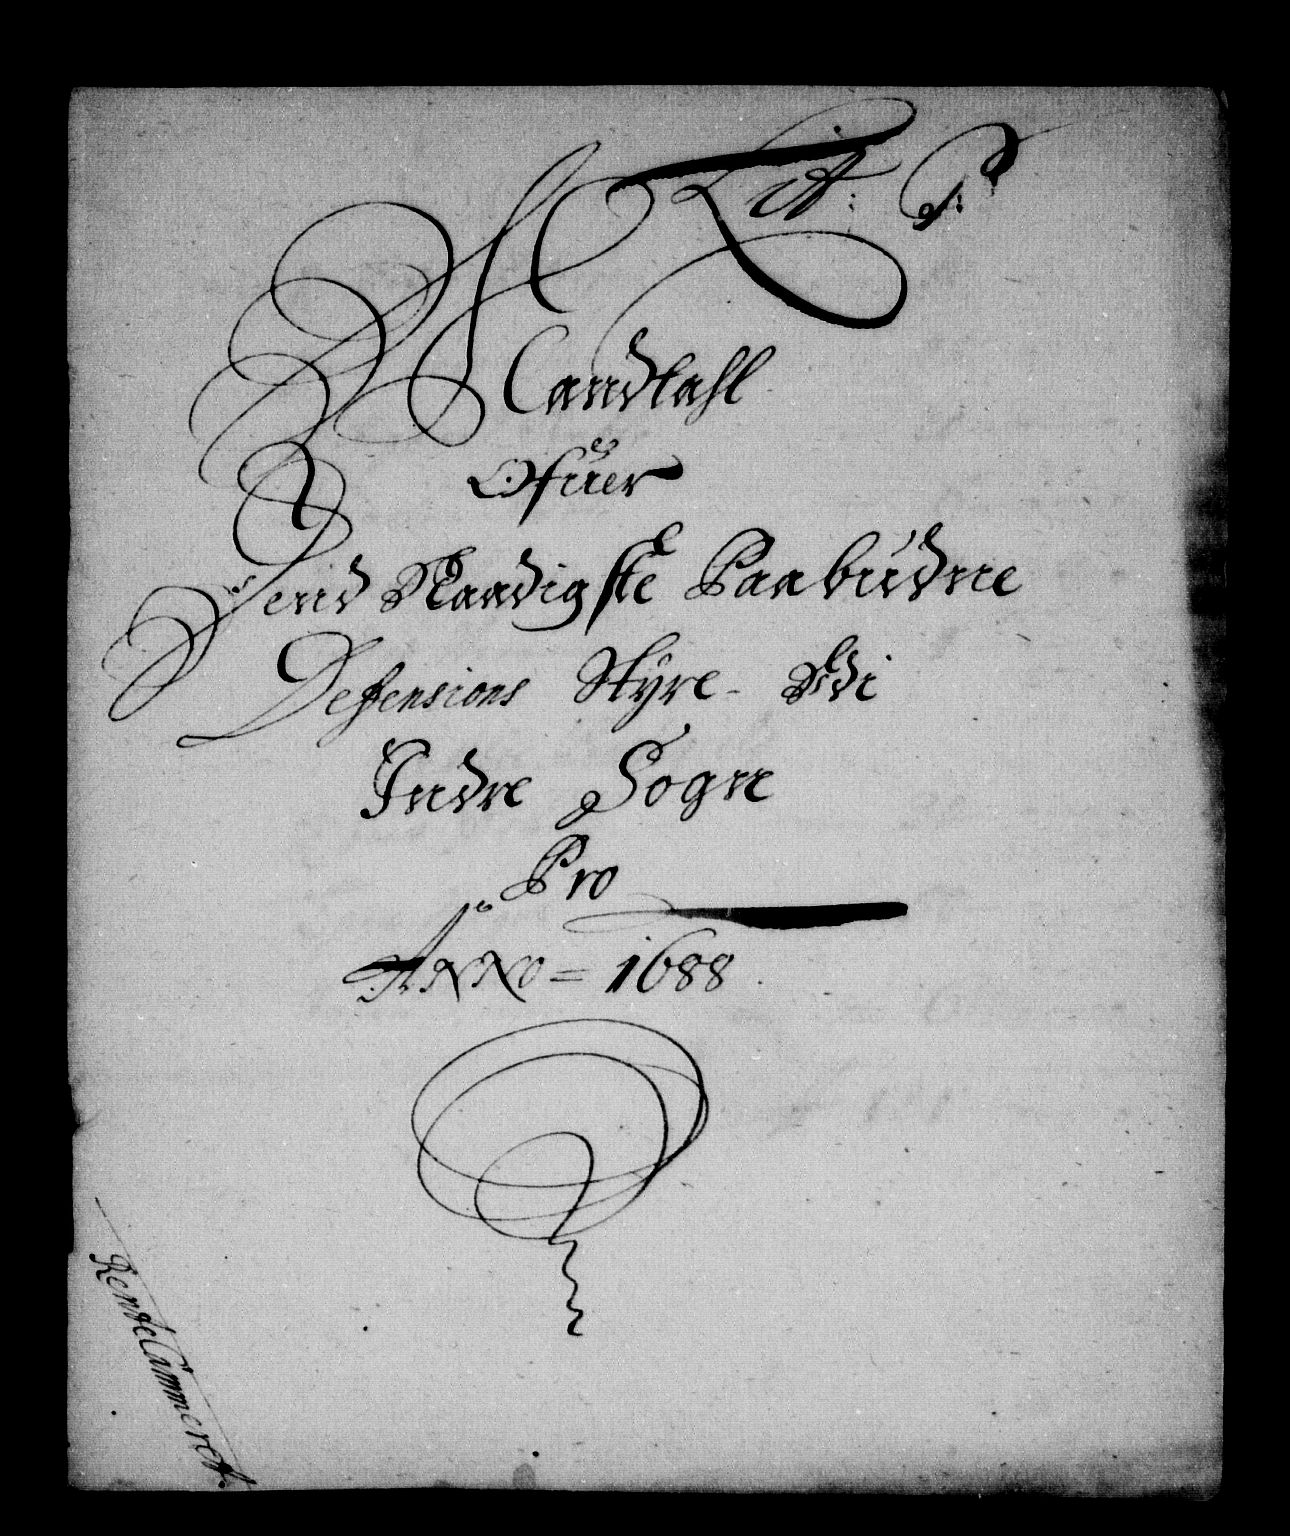 Lit: P:
Mandtahl
Ofuer
Dend Naadigste Paabudne
Defensions Styre Udi
Indre Sogne
Pro
ANNO = 1688
RenteCammeret.